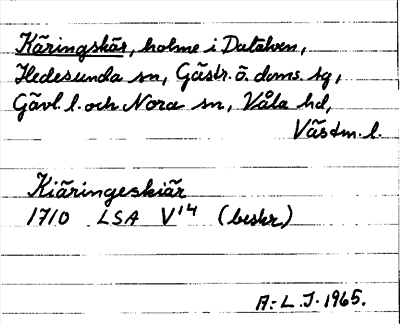 Käringskär, holme i Dalälven,
Hedesunda sn, Gästr. ö. doms. tg,
Gävl. l. och Nora sn, Våla hd,
Västm. l.
Kiäringeskiär
1710 LSA V14 (beskr)
A.-L. J. 1965.